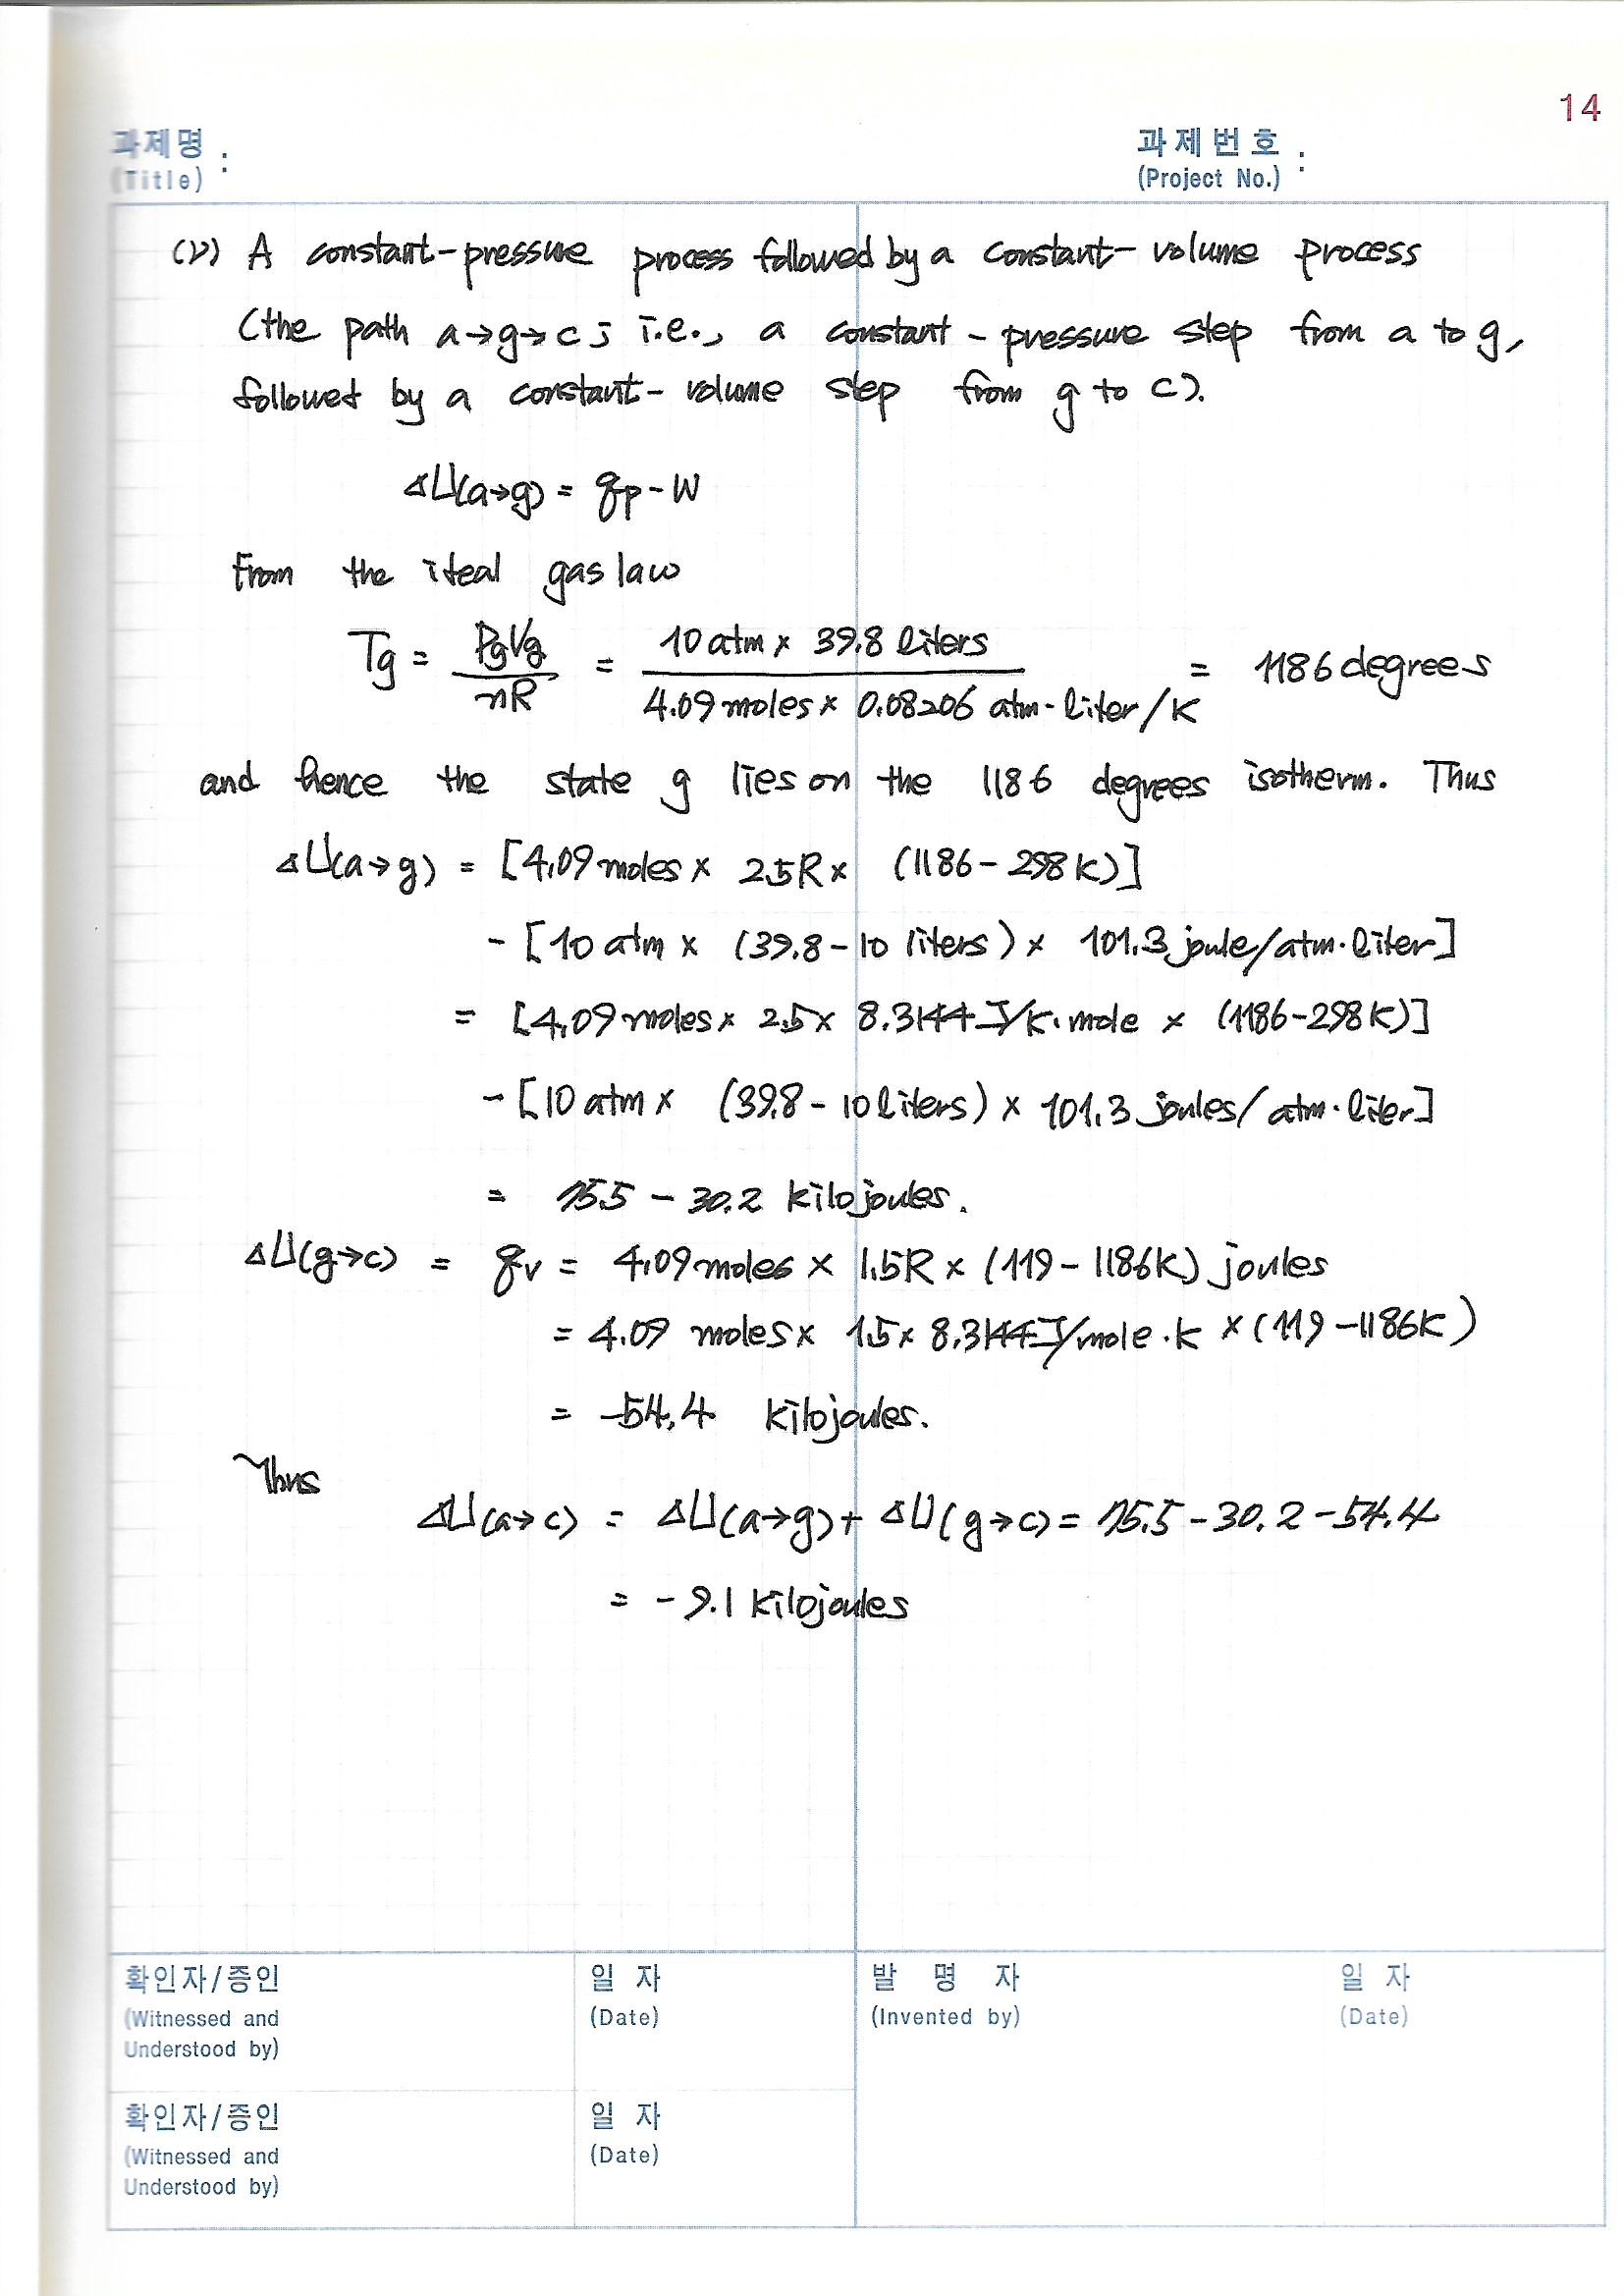 14
과제명 :
(Title)
과제번호 :
(Project No.)
(ν) A constant-pressure process followed by a constant-volume process
(the path a→g→c ; i.e., a constant-pressure step from a to g,
followed by a constant-volume step from g to c).
ΔU(a→g) = qp - W
From the ideal gas law
Tg = PgVg/nR = 10 atm × 39.8 liters / 4.09 moles × 0.08206 atm·liter/K = 1186 degrees
and hence the state g lies on the 1186 degrees isotherm. Thus
ΔU(a→g) = [4.09 moles × 2.5R × (1186-298K)]
- [10 atm × (39.8-10 liters) × 101.3 joule/atm·liter]
= [4.09 moles × 2.5 × 8.3144 J/K·mole × (1186-298K)]
- [10 atm × (39.8-10 liters) × 101.3 joules/atm·liter]
= 75.5 - 30.2 kilojoules.
ΔU(g→c) = qv = 4.09 moles × 1.5R × (119-1186K) joules
= 4.09 moles × 1.5 × 8.3144 J/mole·K × (119-1186K)
= -54.4 kilojoules.
Thus
ΔU(a→c) = ΔU(a→g) + ΔU(g→c) = 75.5 - 30.2 - 54.4
= -9.1 kilojoules
확인자/증인
(Witnessed and
Understood by)
일 자
(Date)
발 명 자
(Invented by)
일 자
(Date)
확인자/증인
(Witnessed and
Understood by)
일 자
(Date)